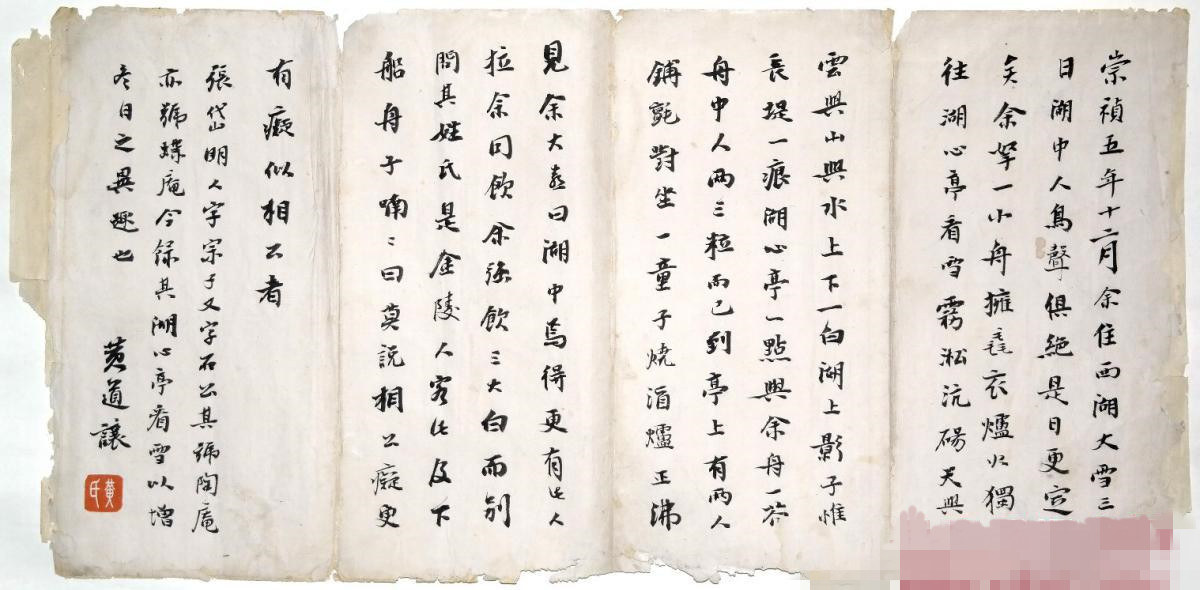 崇禎五年十二月余住西湖大雪三
日湖中人鳥聲俱絕是日更定
矣余拏一小舟擁毳衣爐火獨
往湖心亭看雪霧淞沆碭天與
雲與山與水上下一白湖上影子惟
長堤一痕湖心亭一點與余舟一芥
舟中人兩三粒而已到亭上有兩人
鋪氈對坐一童子燒酒爐正沸
見余大喜曰湖中焉得更有此人
拉余同飲余強飲三大白而別
問其姓氏是金陵人客此及下
船舟子喃〻曰莫説相公癡更
有癡似相公者
張岱明人字宗子又字石公其號陶庵
亦號蝶庵今錄其湖心亭看雪以增
冬日之異趣也
黄道讓
黄氏